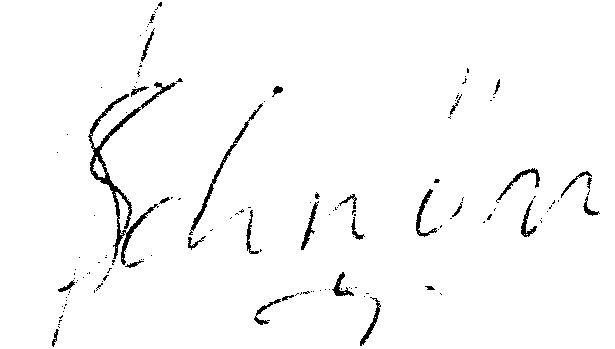 Schnürr